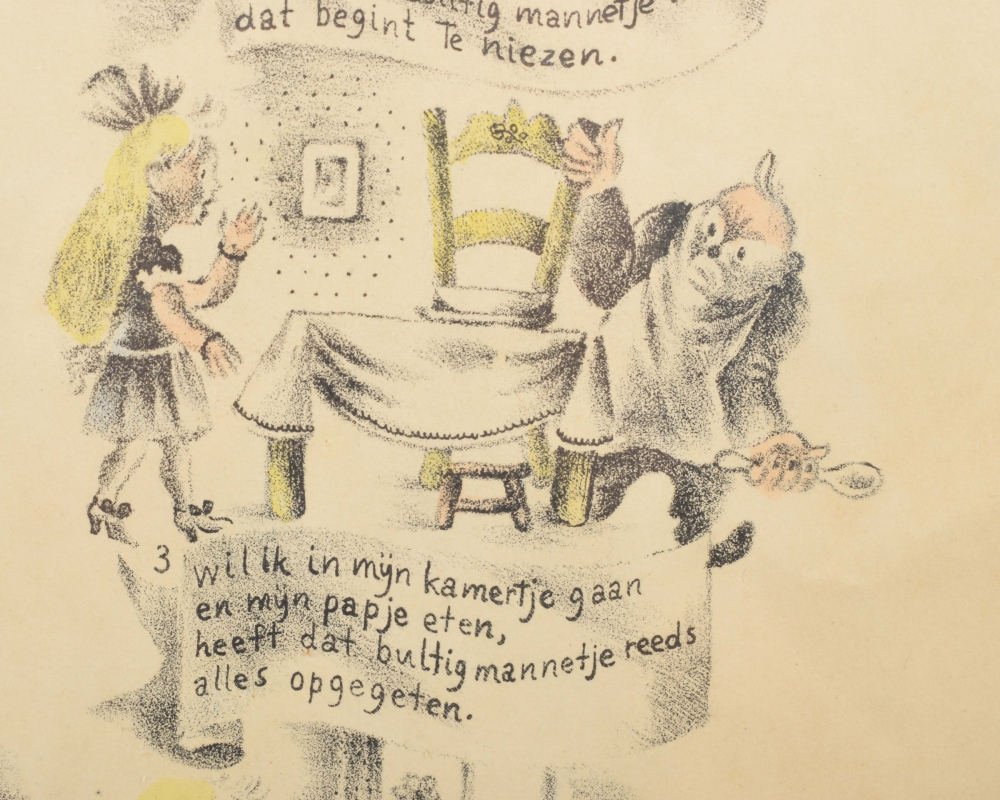 bultig mannetje
dat begint Te niezen.
3 wil ik in mijn kamertje gaan
en mijn papje eten,
heeft dat bultig mannetje reeds
alles opgegeten.